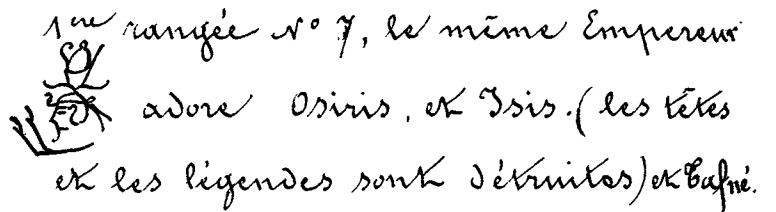 1ere rangée N° 7, le même Empereur
adore Osiris, et Isis. (les têtes
et les légendes sont détruites) et Tafné.